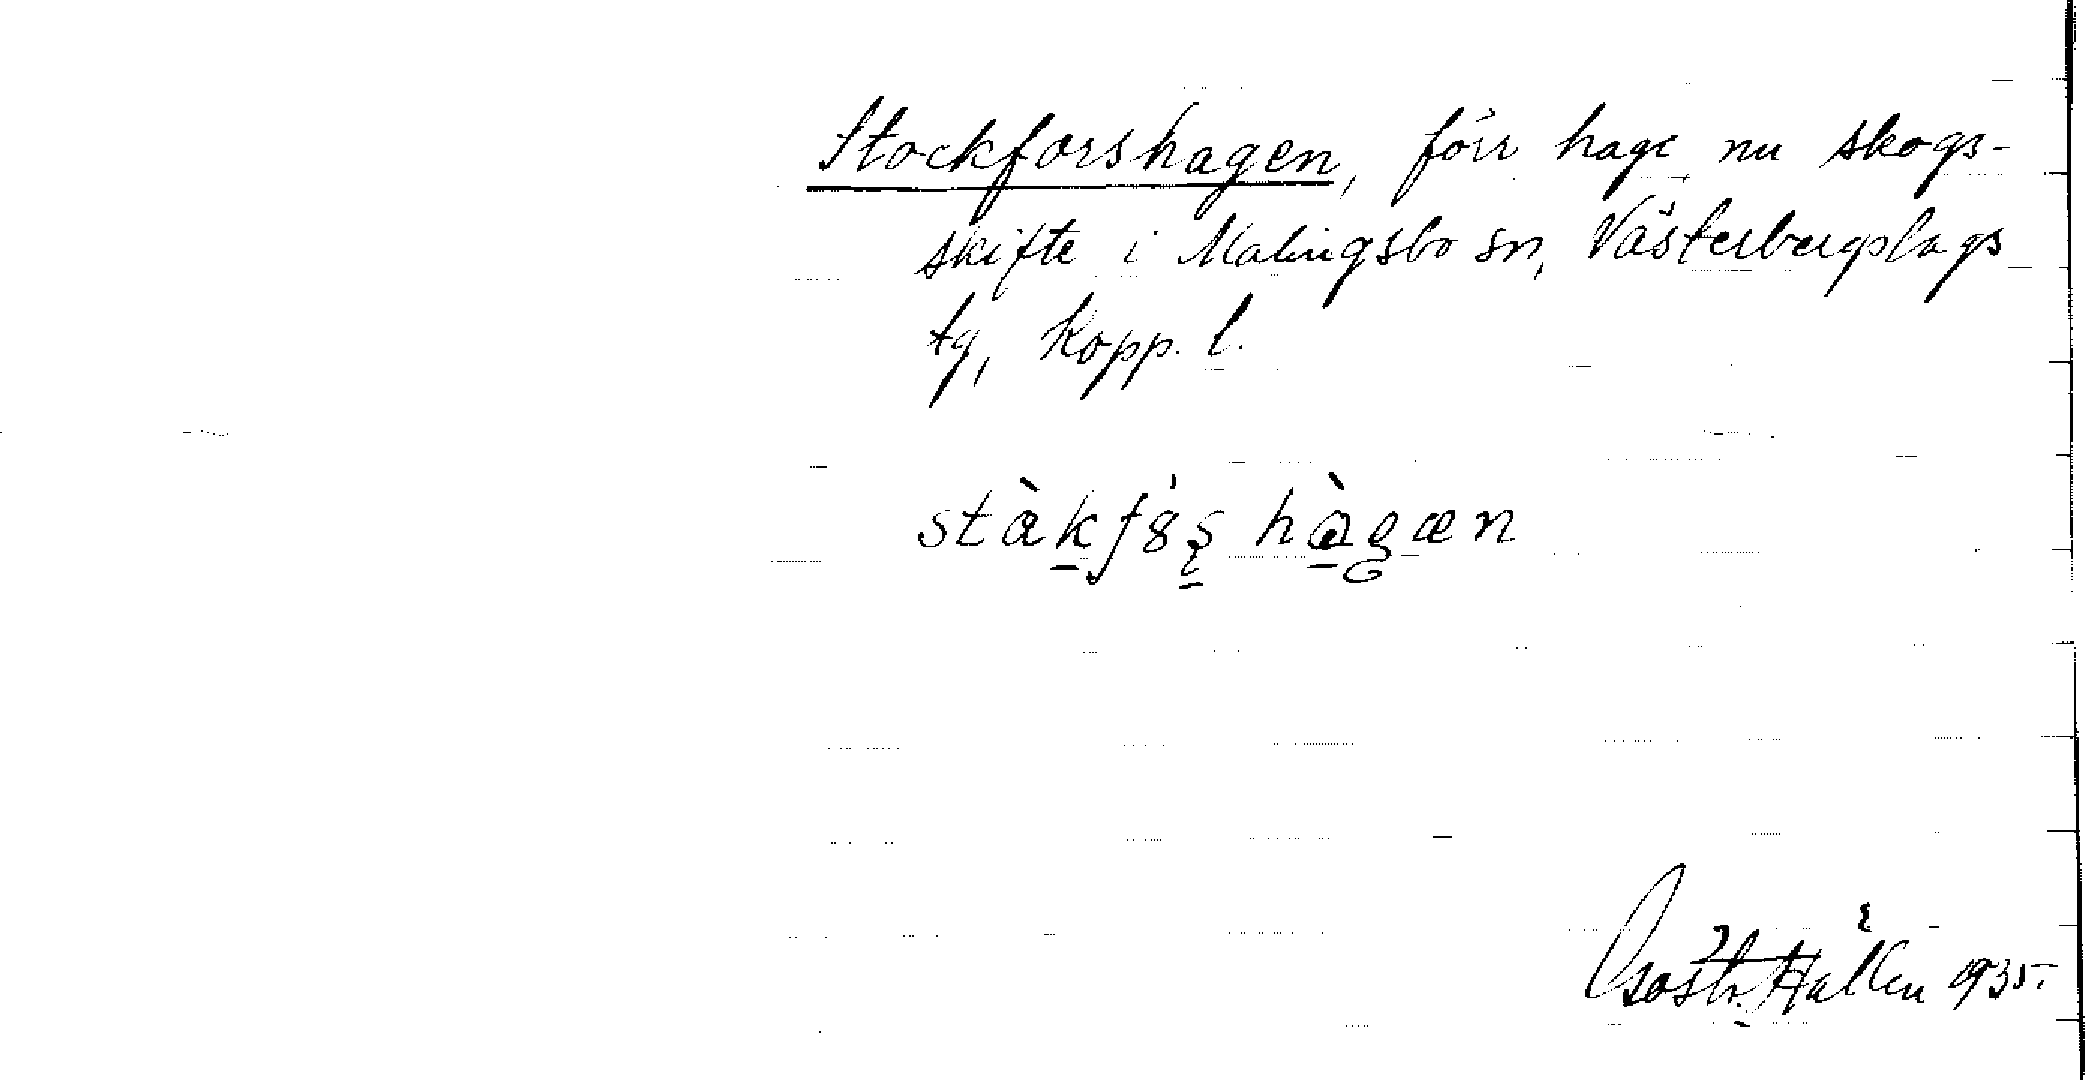 Stockforshagen, förr hage nu skogs-
skifte i Malingsbo sn, Västerbergslags
tg, Kopp. l.
hàgæn
Hallén 1935.